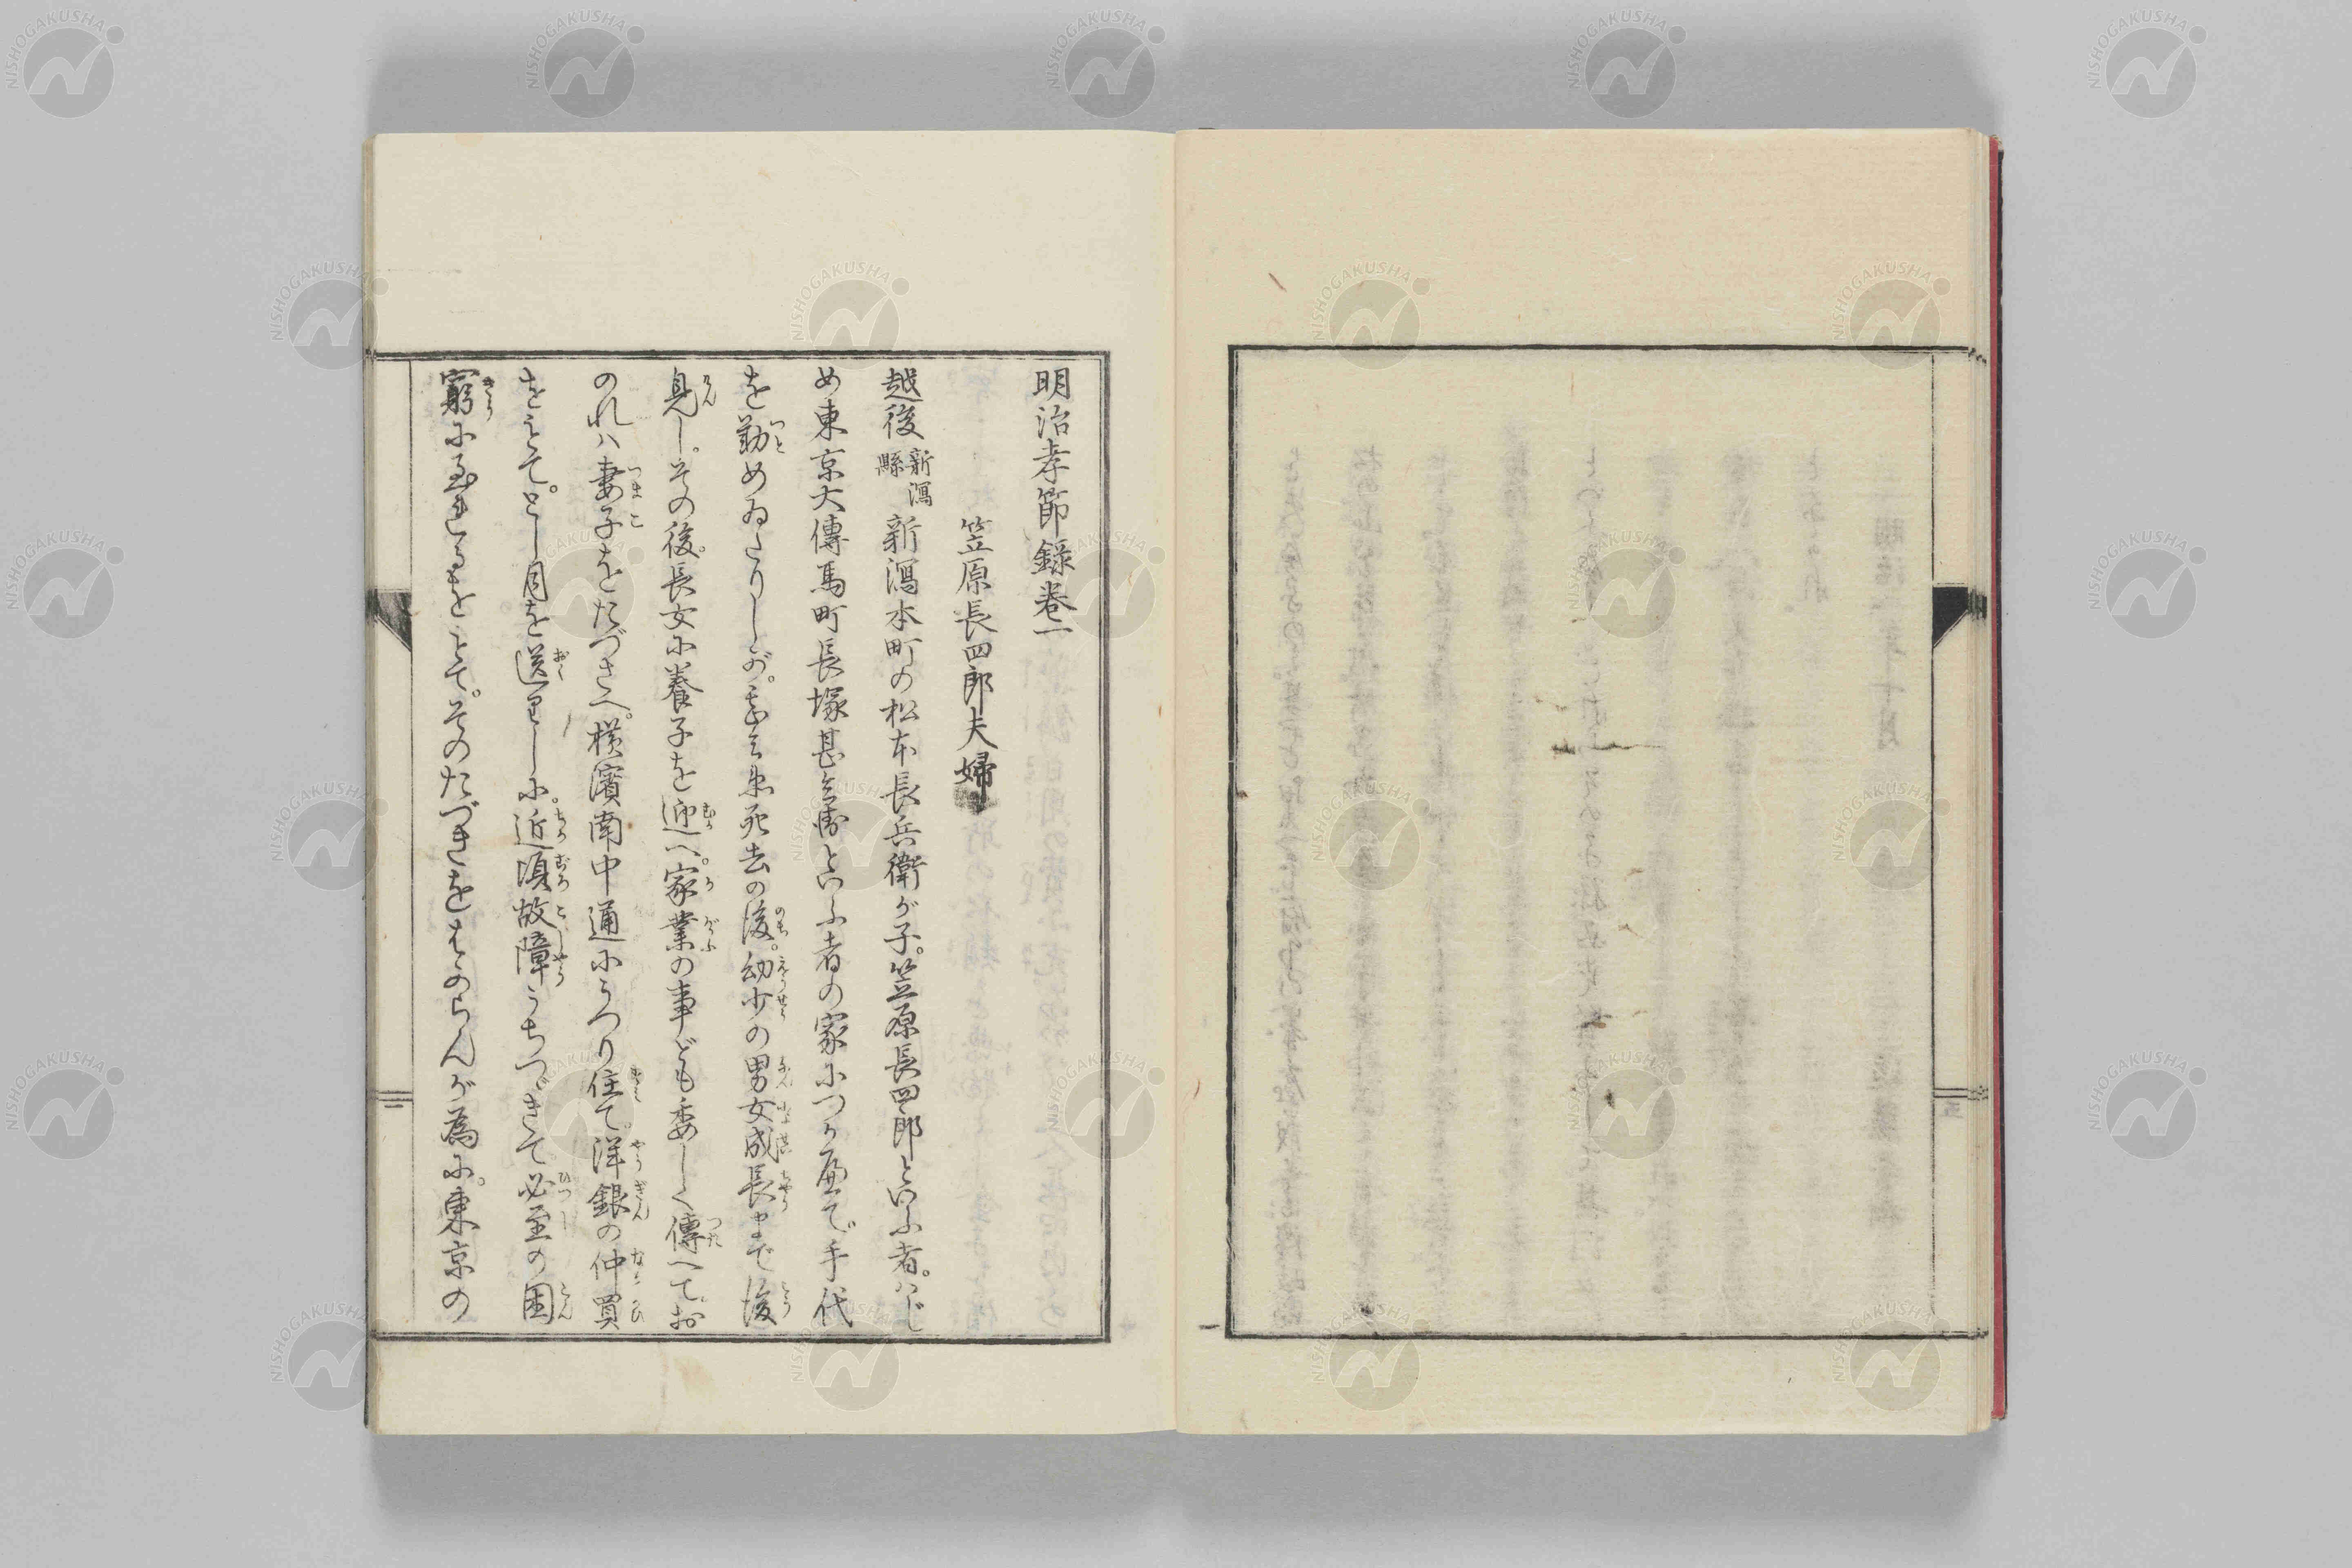 明治孝節録巻一
笠原長四郎夫婦
越後新潟縣新潟本町の松本長兵衛が子。笠原長四郎といふ者。ハじ
め東京大傳馬町長塚甚兵衛といふ者の家につかへて。手代
を勤めゐたりしが。甚兵衛死去の後。幼少の男女成長まで後
見し。その後。長女に養子を迎へ。家業の事ども委しく傳へて。お
のれハ妻子をたづさへ。横濱南中通にうつり住て。洋銀の仲買
をして。とし月を送りしに。近頃故障うちつゞきて必至の困
窮に至れるをもて。そのたづきをはからんが為に。東京の
NISHOGAKUSHA